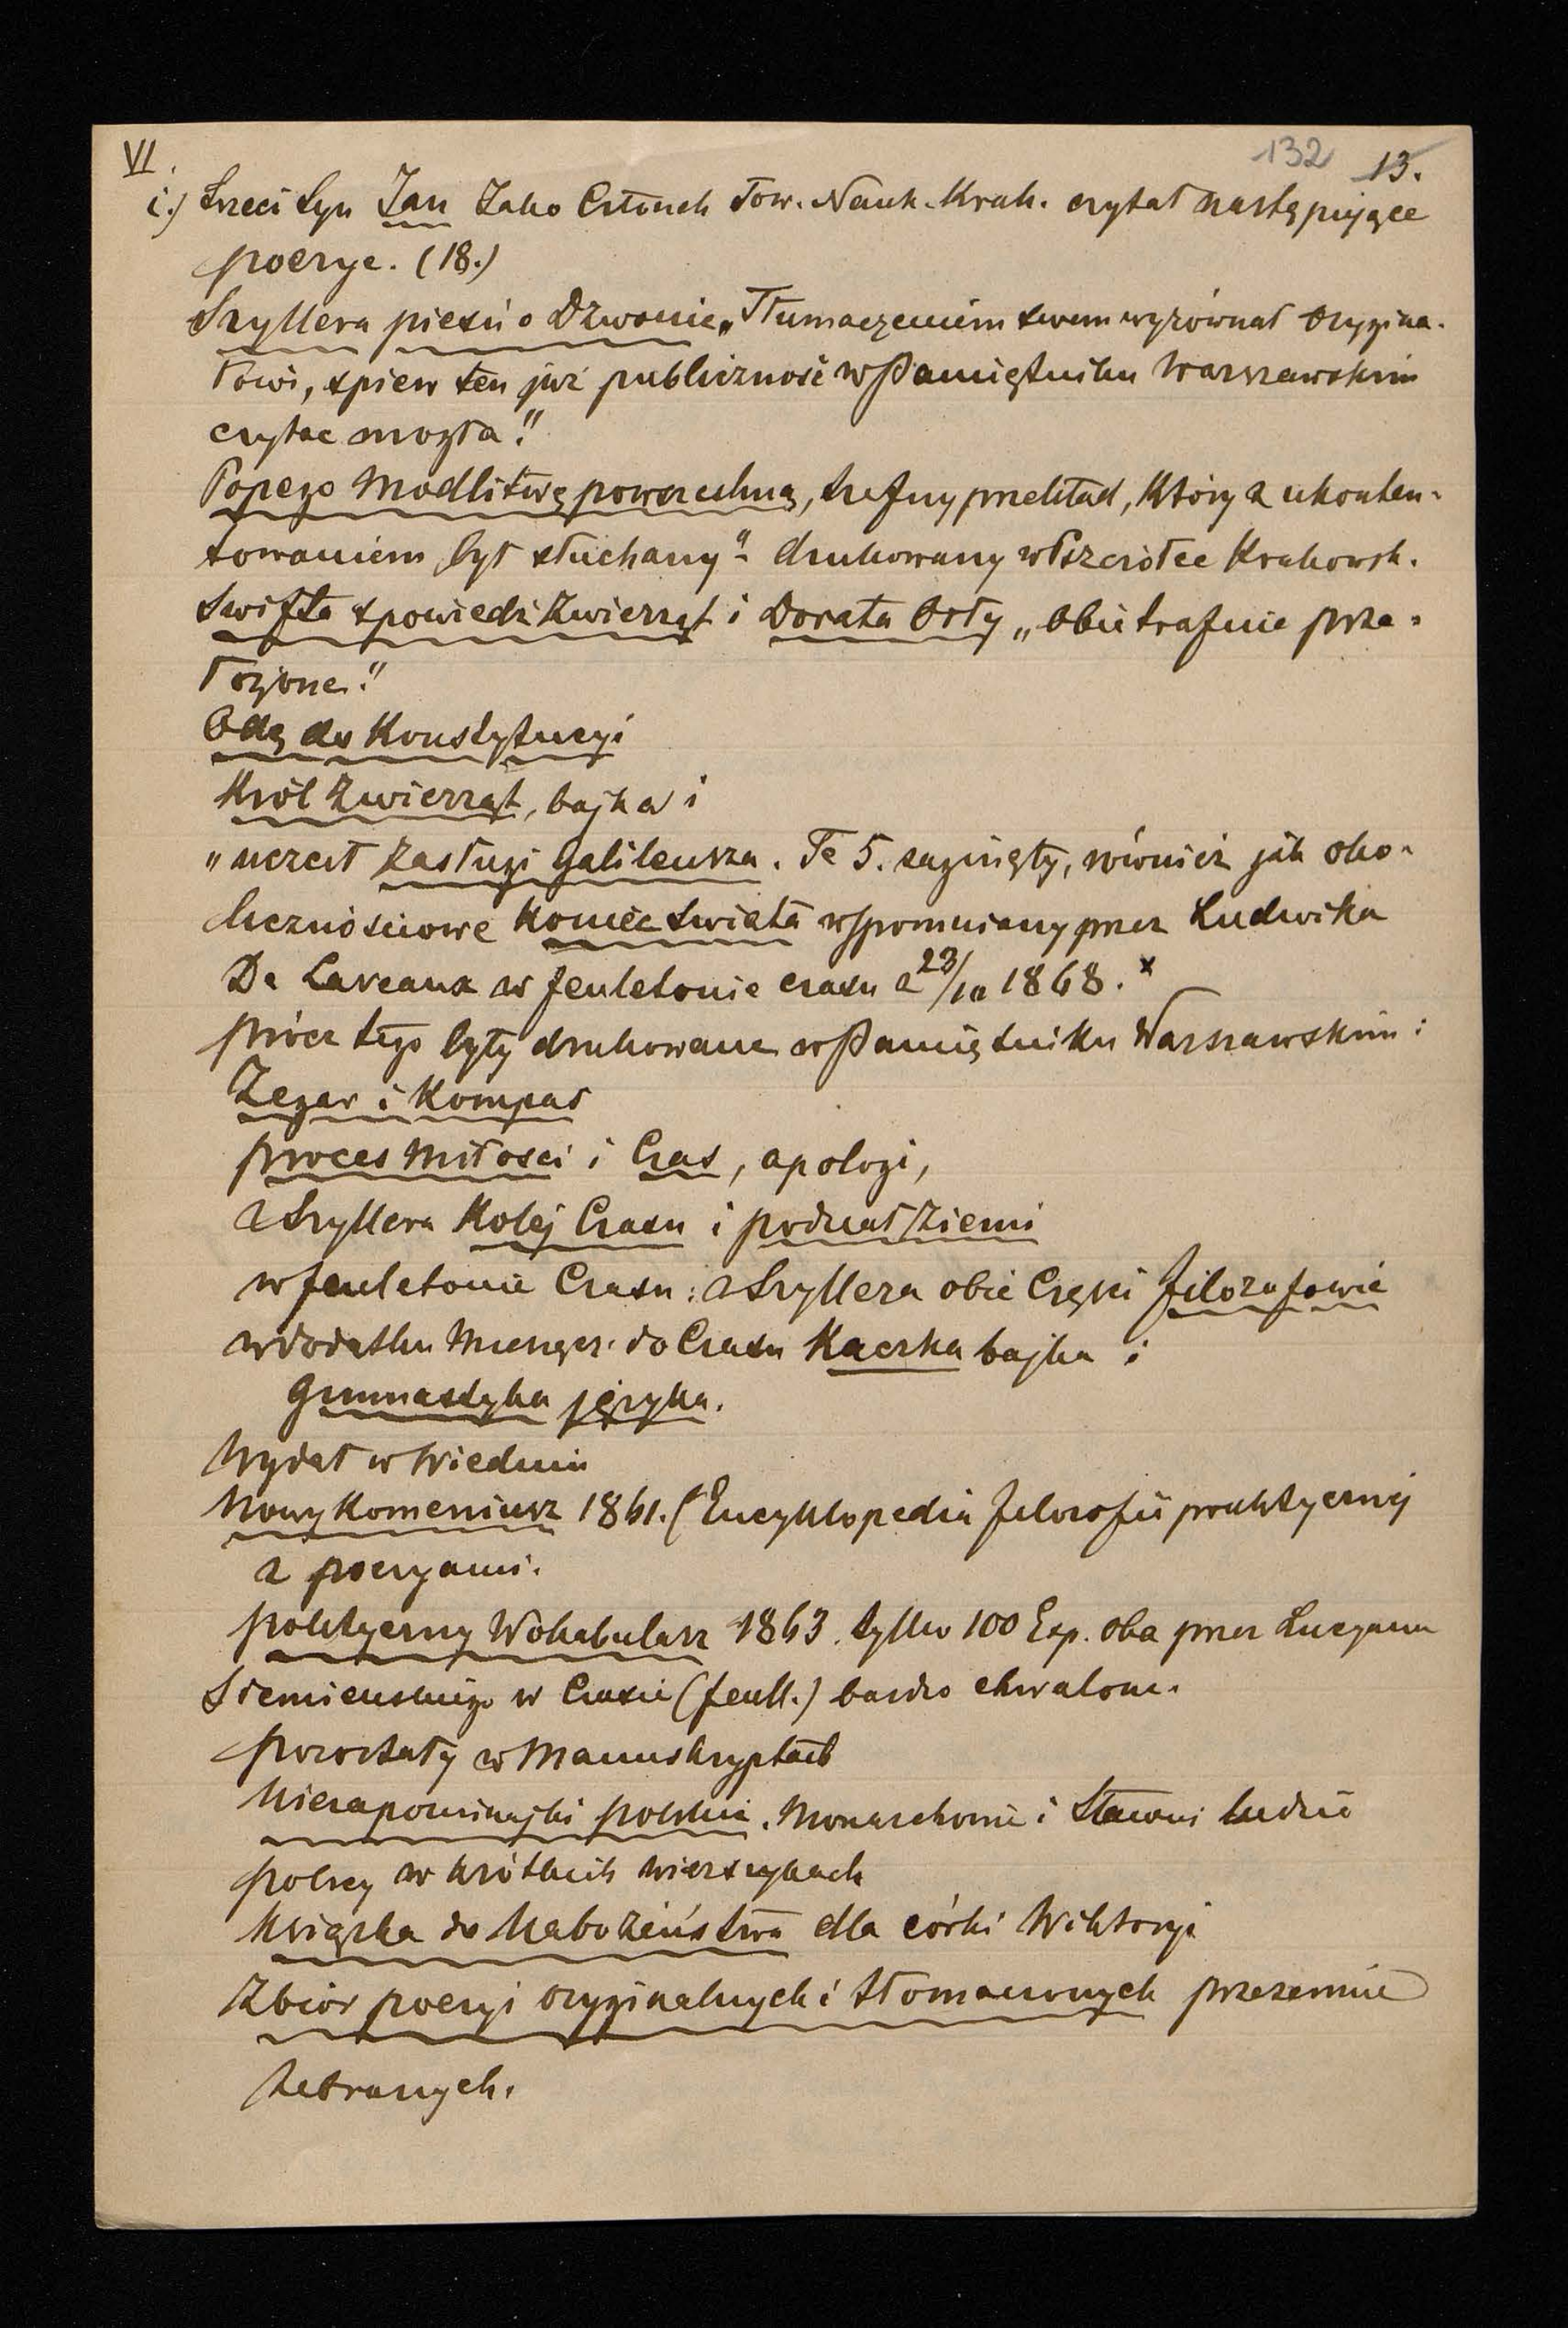 VI.
132 13.
i.) Trzeci Syn Jan Jako Członek Tow. Nauk. Krak. czytał następujące
poezye. (18.)
Szyllera pieśń o Dzwonie „Tłumaczeniem swem wyrównał orygina-
łowi, śpiew ten już publiczność w Pamiętniku Warszawskim
czytać mogła."
Popego Modlitwę powszechną, trafny przekład, który z ukonten-
towaniem był słuchany" – drukowany w Pszczółce Krakowsk.
Swifta spowiedź Zwierząt i Dorata Orły „obie trafnie prze-
łożone."
Odę do Konstytucyi
Król Zwierząt, bajka i
„uczcił zasługi Galileusza. Te 5. zaginęły, również jak oko-
licznościowe Koniec Świata wspomniany przez Ludwika
De Laveaux w feuletonie czasu z 23/10 1868. x
prócz tego były drukowane w Pamiętniku Warszawskim:
Zegar i Kompas
proces Miłości i Czas, apologi,
z Szyllera Kolej Czasu i podział Ziemi
w feuletonie Czasu: z Szyllera obie Części filozofowie
w dodatku Miesięcz. do Czasu Kaczka bajka i
Gimnastyka języka.
Wydał w Wiedniu
Nowy Komeniusz 1861. (Encyklopedia filozofii praktycznej
z poezyami.
polityczny Wokabularz 1863. tylko 100 Exp. oba przez Lucyana
Siemieńskiego w Czasie (feull.) bardzo chwalone.
pozostały w Manuskryptach
Niezapominajki polskie. Monarchowie i Sławni ludzie
polscy w krótkich wierszykach
Książka do Nabożeństwa dla córki Wiktoryi
Zbiór poezyi oryginalnych i tłomaczonych przezemnie
zebranych.